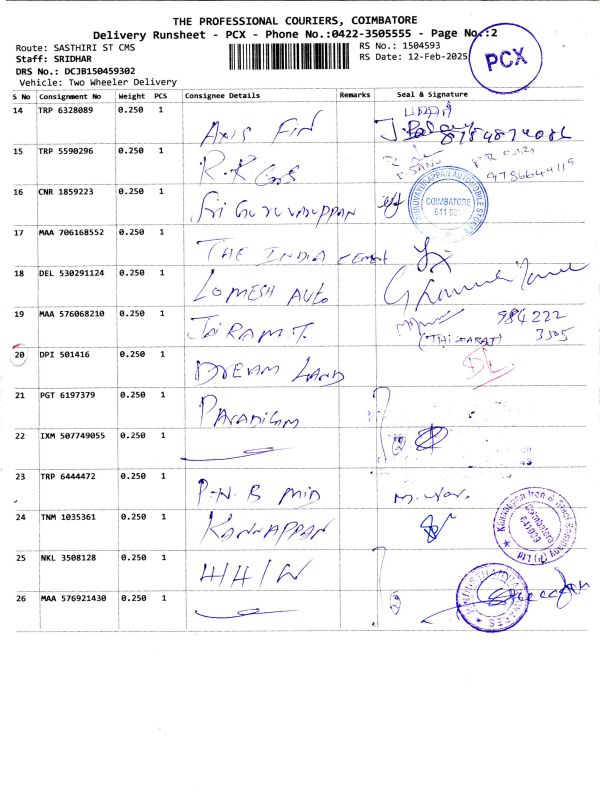 THE PROFESSIONAL COURIERS, COIMBATORE
Delivery Runsheet - PCX - Phone No.:0422-3505555 - Page No.:2
PCX
Route: SASTHIRI ST CMS
RS No.: 1504593
Staff: SRIDHAR
RS Date: 12-Feb-2025
DRS No.: DCJB150459302
Vehicle: Two Wheeler Delivery
S No Consignment No Weight PCS Consignee Details Remarks Seal & Signature
14 TRP 6328089 0.250 1 Axis Fin
15 TRP 5590296 0.250 1 R.R 9786644119
16 CNR 1859223 0.250 1 Sri Guruvauppan
COIMBATORE
17 MAA 706168552 0.250 1 THE INDIA CEMENT
18 DEL 530291124 0.250 1 LOMESH AUTO
19 MAA 576068210 0.250 1 JAIRAM T. 984222
3305
20 DPI 501416 0.250 1 DREAM LAND
21 PGT 6197379 0.250 1 PARADIGM
22 IXM 507749055 0.250 1
23 TRP 6444472 0.250 1 P.N.B MID
24 TNM 1035361 0.250 1 KANNAPPAN
Kannappan Iron & Steel Company (P) Ltd
Coimbatore
641029
25 NKL 3508128 0.250 1 H/H/W
26 MAA 576921430 0.250 1